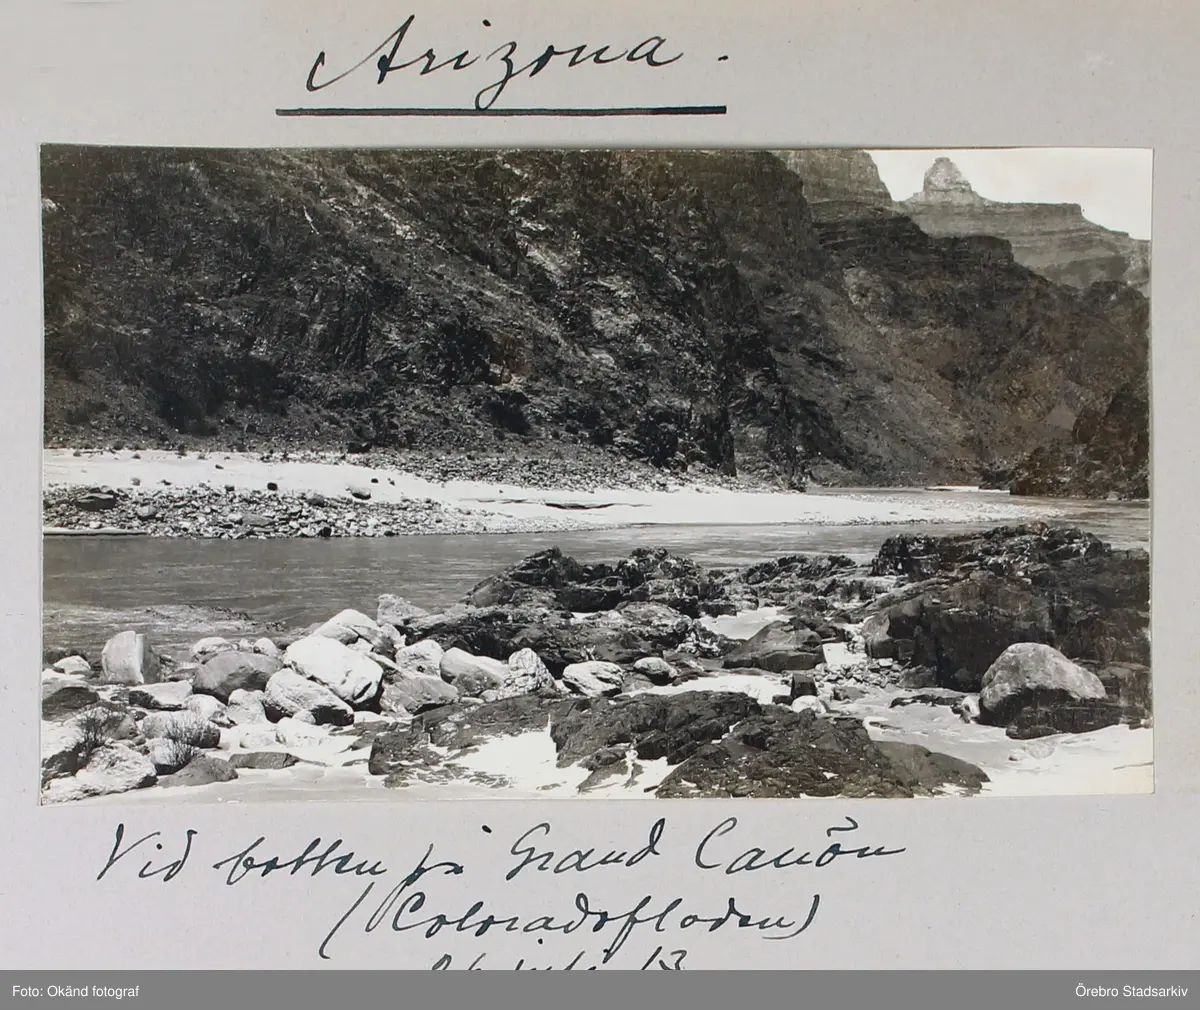 Arizona.
Vid botten på Grand Cañon
(Coloradofloden)
26 juli 13
Foto: Okänd fotograf
Örebro Stadsarkiv